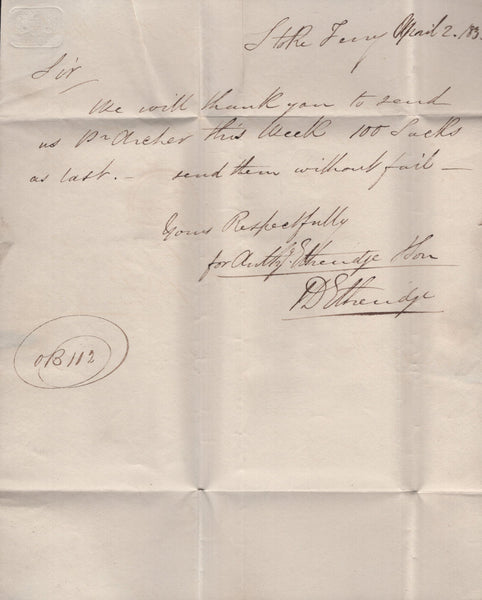 Stoke Ferry April 2. 183
Sir
We will thank you to send
us Pr Archer this Week 100 Sacks
as last. — send them without fail —
Yours Respectfully
for Anthy. Etheridge & Son
D Etheridge
OB 112